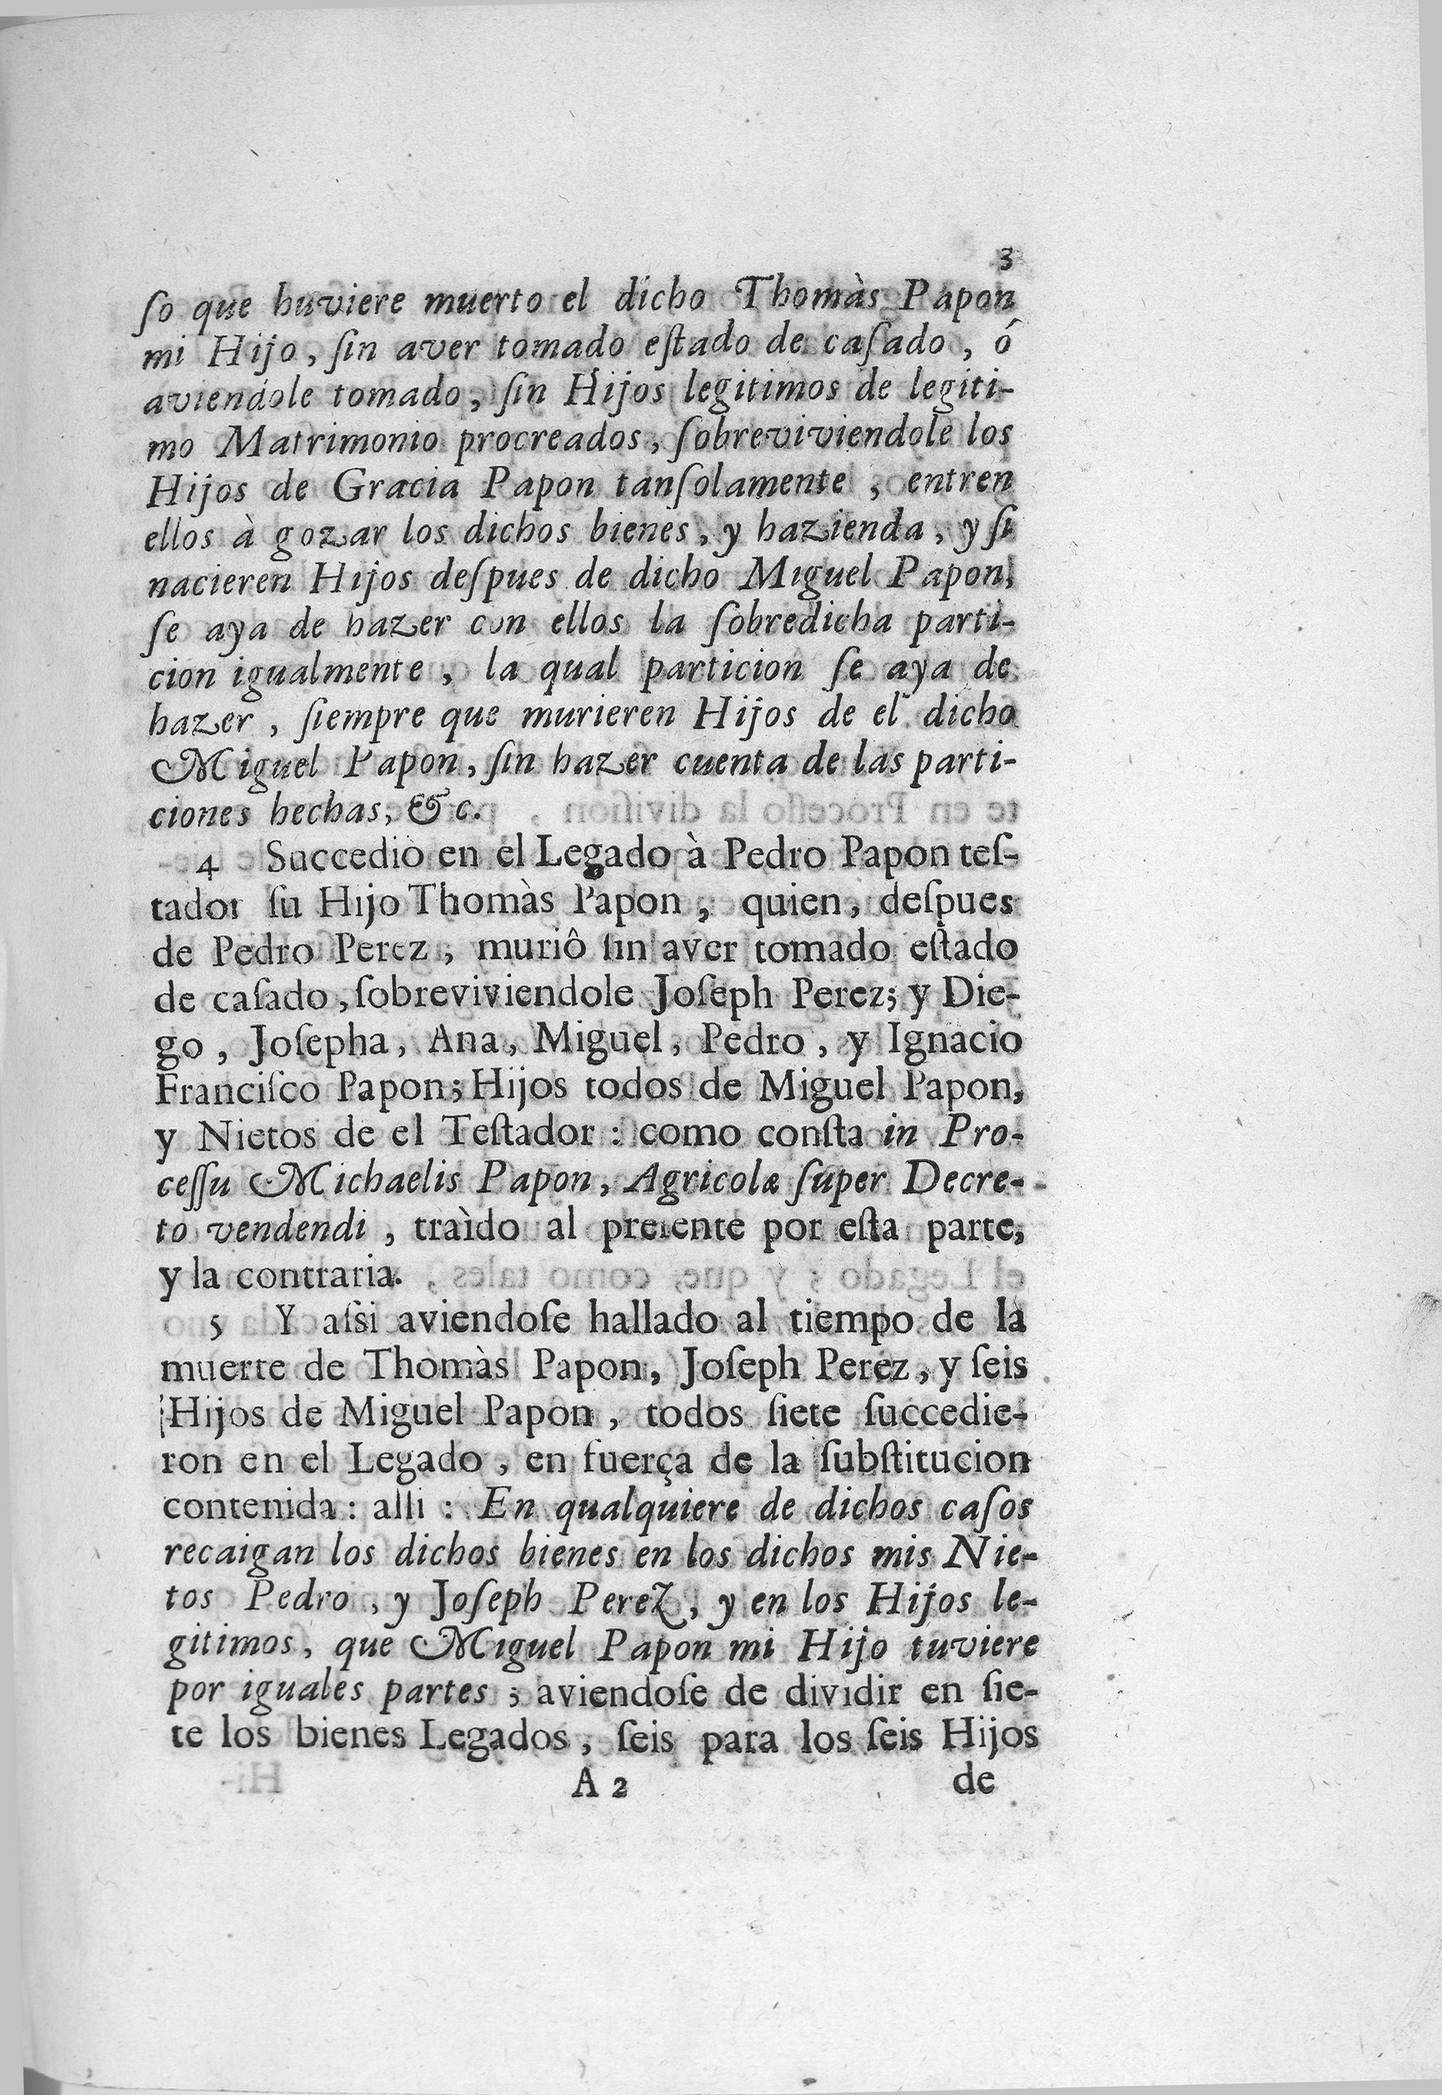 3
ſo que huviere muerto el dicho Thomàs Papon
mi Hijo, ſin aver tomado eſtado de caſado, ó
aviendole tomado, ſin Hijos legitimos de legiti-
mo Matrimonio procreados, ſobreviviendole los
Hijos de Gracia Papon tanſolamente, entren
ellos à gozar los dichos bienes, y hazienda, y ſi
nacieren Hijos deſpues de dicho Miguel Papon,
ſe aya de hazer con ellos la ſobredicha parti-
cion igualmente, la qual particion ſe aya de
hazer, ſiempre que murieren Hijos de el dicho
Miguel Papon, ſin hazer cuenta de las parti-
ciones hechas, &c.
4 Succediò en el Legado à Pedro Papon teſ-
tador ſu Hijo Thomàs Papon, quien, deſpues
de Pedro Perez, muriô ſin aver tomado eſtado
de caſado, ſobreviviendole Joſeph Perez; y Die-
go, Joſepha, Ana, Miguel, Pedro, y Ignacio
Franciſco Papon; Hijos todos de Miguel Papon,
y Nietos de el Teſtador: como conſta in Pro-
ceſſu Michaelis Papon, Agricolæ ſuper Decre-
to vendendi, traìdo al preſente por eſta parte,
y la contraria.
5 Y aſsi aviendoſe hallado al tiempo de la
muerte de Thomàs Papon, Joſeph Perez, y ſeis
Hijos de Miguel Papon, todos ſiete ſuccedie-
ron en el Legado, en fuerça de la ſubſtitucion
contenida: alli: En qualquiere de dichos caſos
recaigan los dichos bienes en los dichos mis Nie-
tos Pedro, y Joſeph Perez, y en los Hijos le-
gitimos, que Miguel Papon mi Hijo tuviere
por iguales partes; aviendoſe de dividir en ſie-
te los bienes Legados, ſeis para los ſeis Hijos
A 2 de